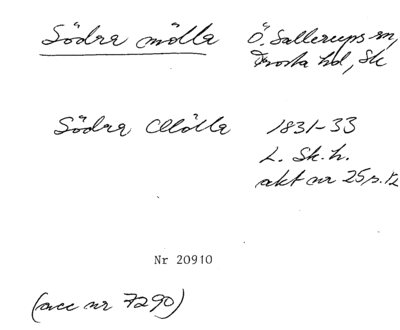 Södra mölla Ö. Sallerups sn,
Frosta hd, Sk
Södra Mölla 1831-33
L. Sk. h.
akt nr 25, s. 12
Nr 20910
(acc nr 7290)